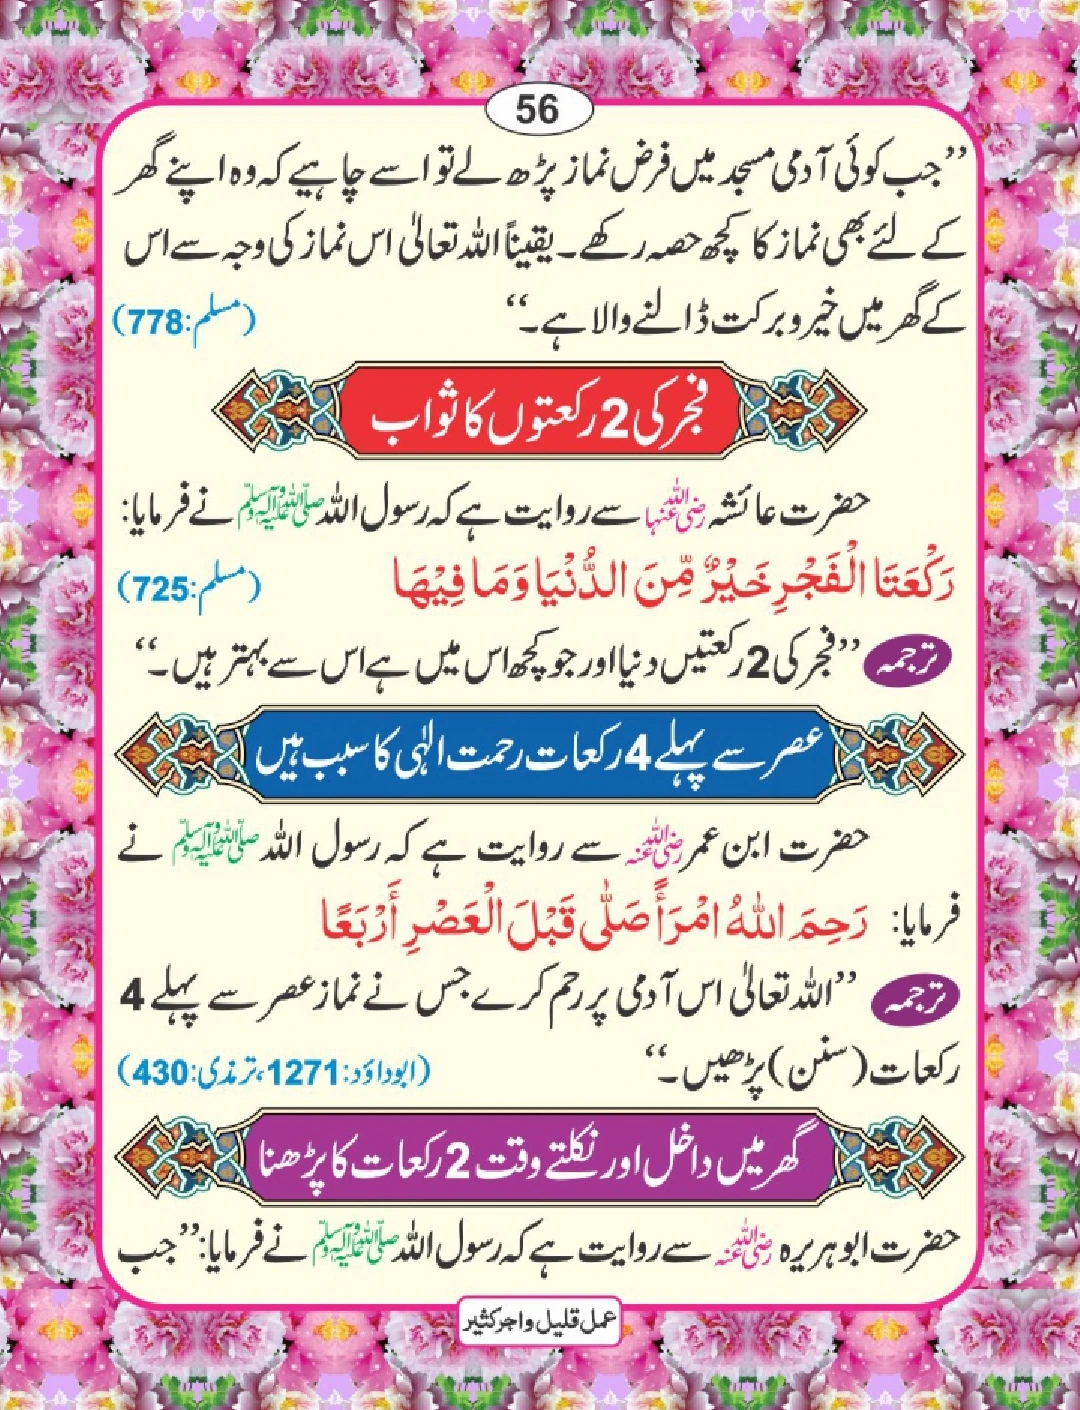 56
’’جب کوئی آدمی مسجد میں فرض نماز پڑھ لے تو اسے چاہیے کہ وہ اپنے گھر
کے لئے بھی نماز کا کچھ حصہ رکھے۔ یقیناً اللہ تعالیٰ اس نماز کی وجہ سے اس
کے گھر میں خیر و برکت ڈالنے والا ہے۔‘‘ (مسلم:778)
فجر کی 2 رکعتوں کا ثواب
حضرت عائشہ رضی اللہ عنہا سے روایت ہے کہ رسول اللہ صلی اللہ علیہ وسلم نے فرمایا:
رَكْعَتَا الْفَجْرِ خَيْرٌ مِّنَ الدُّنْيَا وَمَا فِيْهَا (مسلم:725)
ترجمہ ’’فجر کی 2 رکعتیں دنیا اور جو کچھ اس میں ہے اس سے بہتر ہیں۔‘‘
عصر سے پہلے 4 رکعات رحمت الٰہی کا سبب ہیں
حضرت ابن عمر رضی اللہ عنہ سے روایت ہے کہ رسول اللہ صلی اللہ علیہ وسلم نے
فرمایا: رَحِمَ اللهُ امْرَأً صَلّٰى قَبْلَ الْعَصْرِ أَرْبَعًا
ترجمہ ’’اللہ تعالیٰ اس آدمی پر رحم کرے جس نے نماز عصر سے پہلے 4
رکعات (سنن) پڑھیں۔‘‘ (ابوداؤد:1271، ترمذی:430)
گھر میں داخل اور نکلتے وقت 2 رکعات کا پڑھنا
حضرت ابو ہریرہ رضی اللہ عنہ سے روایت ہے کہ رسول اللہ صلی اللہ علیہ وسلم نے فرمایا:’’جب
عمل قلیل و اجر کثیر